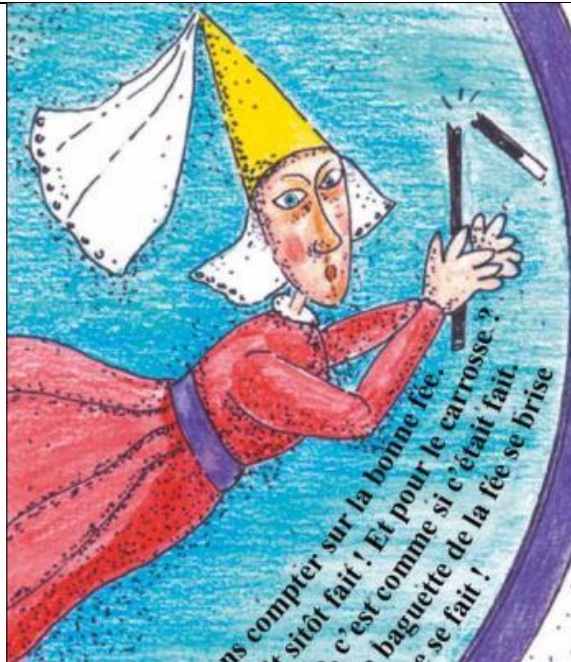 compter sur la bonne fée.
sitôt fait ! Et pour le carrosse ?
c'est comme si c'était fait.
baguette de la fée se brise
se fait !